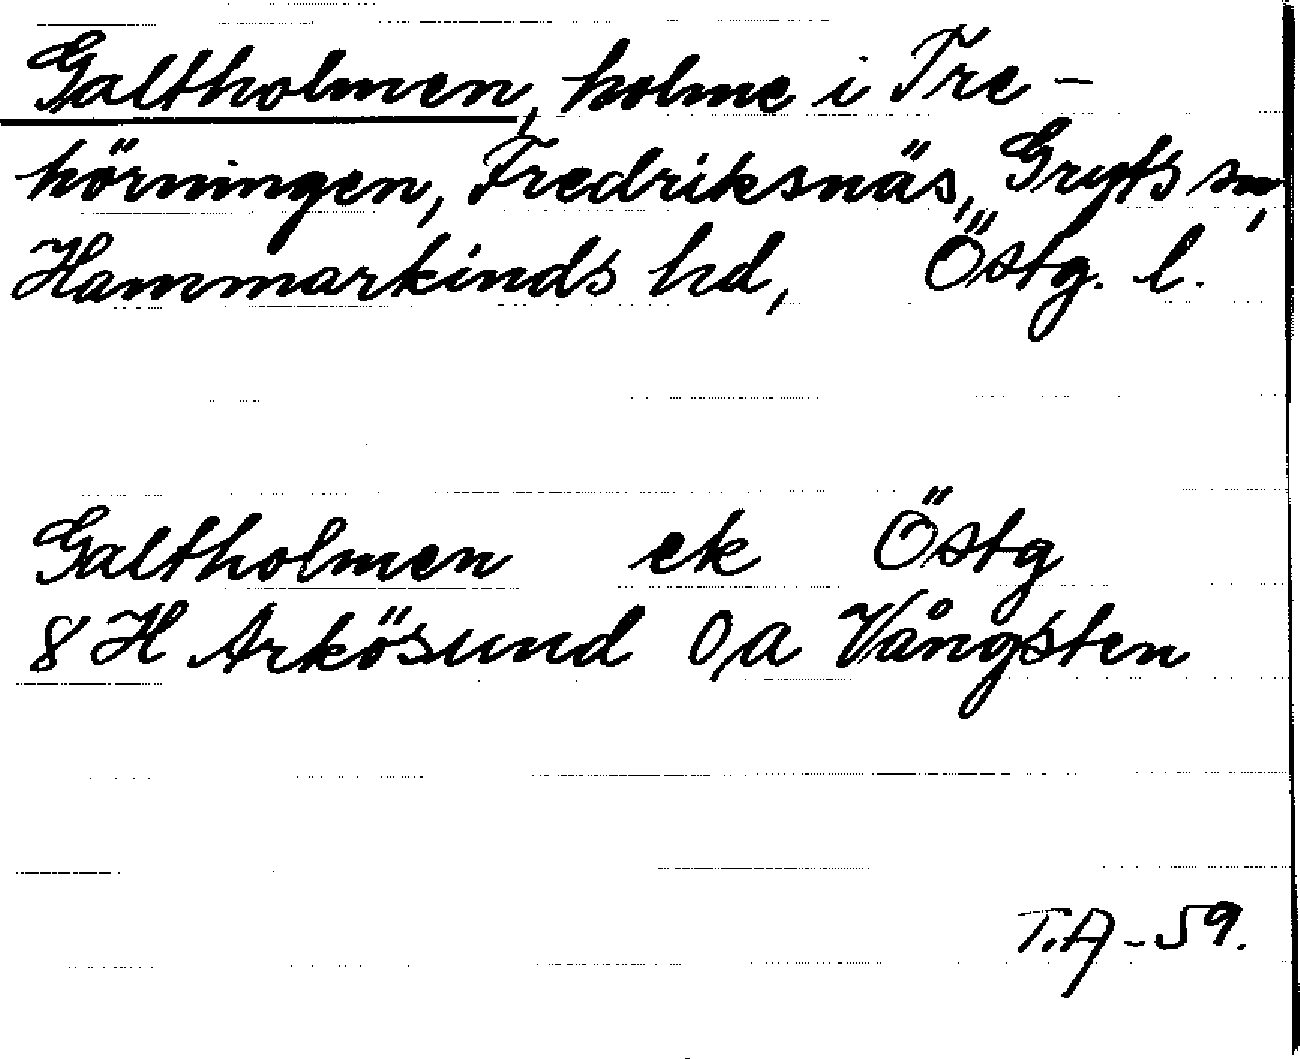 Galtholmen, holme i Tre-
hörningen, Fredriksnäs, Gryts sn,
Hammarkinds hd, Östg. l.
Galtholmen ek Östg
8 H Arkösund 0,a Vångsten
T.A-59.